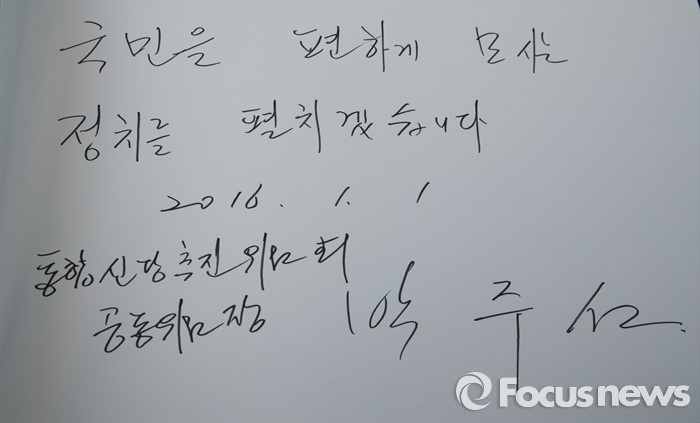 국민을 편하게 모시는
정치를 펼치겠습니다
2016. 1. 1
통합신당추진위원회
공동위원장 박주선
Focusnews